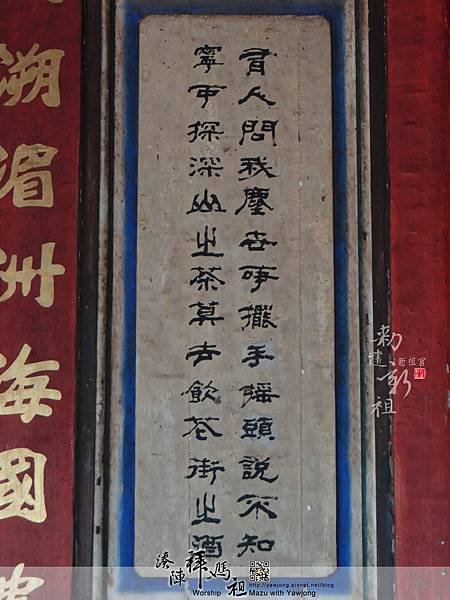 有人問我塵世事擺手搖頭說不知
寧可探深山之茶莫去飲花街之酒
溯湄洲海國
勅建新祖
新祖宮
湊陣拜媽祖
http://yawjong.pixnet.net/blog
Worship Mazu with Yawjong